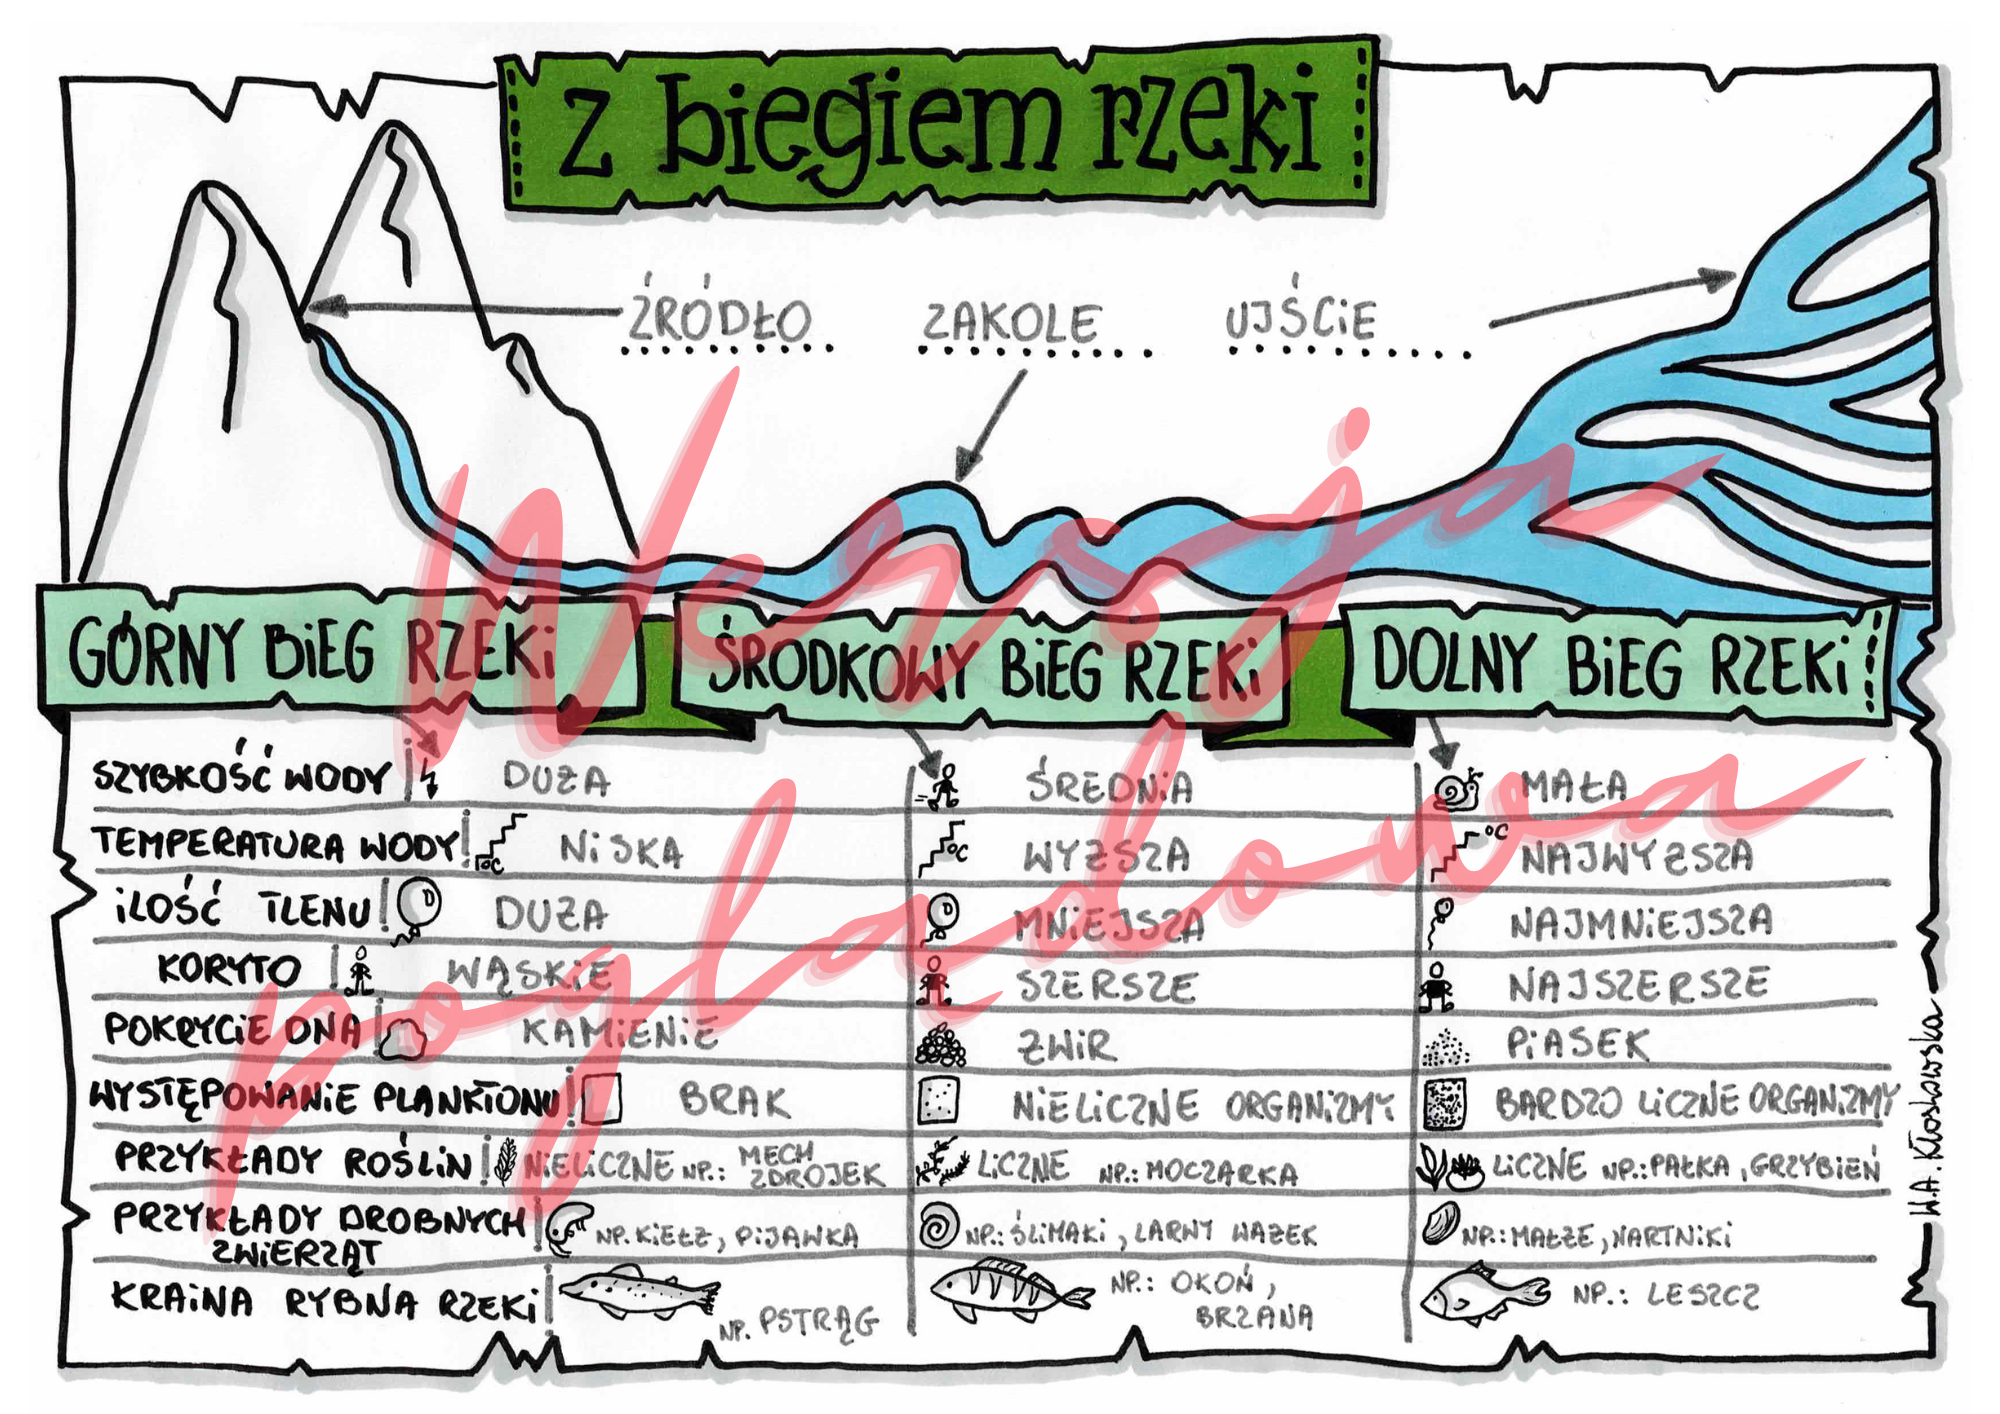 z biegiem rzeki
ŹRÓDŁO ZAKOLE UJŚCiE
Wersja
poglądowa
GÓRNY BiEG RZEKi ŚRODKOWY BiEG RZEKi DOLNY BiEG RZEKi
SZYBKOŚĆ WODY DUŻA ŚREDNiA MAŁA
TEMPERATURA WODY °C NiSKA °C WYŻSZA °C NAJWYŻSZA
iLOŚĆ TLENU DUŻA MNiEJSZA NAJMNiEJSZA
KORYTO WĄSKiE SZERSZE NAJSZERSZE
POKRYCiE DNA KAMiENiE ŻWiR PiASEK
WYSTĘPOWANiE PLANKTONU BRAK NiELiCZNE ORGANiZMY BARDZO LiCZNE ORGANiZMY
PRZYKŁADY ROŚLiN NiELiCZNE NP.: MECH ZDROJEK LiCZNE NP.: MOCZARKA LiCZNE NP.: PAŁKA, GRZYBiEŃ
PRZYKŁADY DROBNYCH ZWiERZĄT NP. KiEŁŻ, PiJAWKA NP.: ŚLiMAKi, LARWY WAŻEK NP.: MAŁŻE, NARTNiKi
KRAiNA RYBNA RZEKi NP. PSTRĄG NP.: OKOŃ, BRZANA NP.: LESZCZ
W.A. Kłoskowska